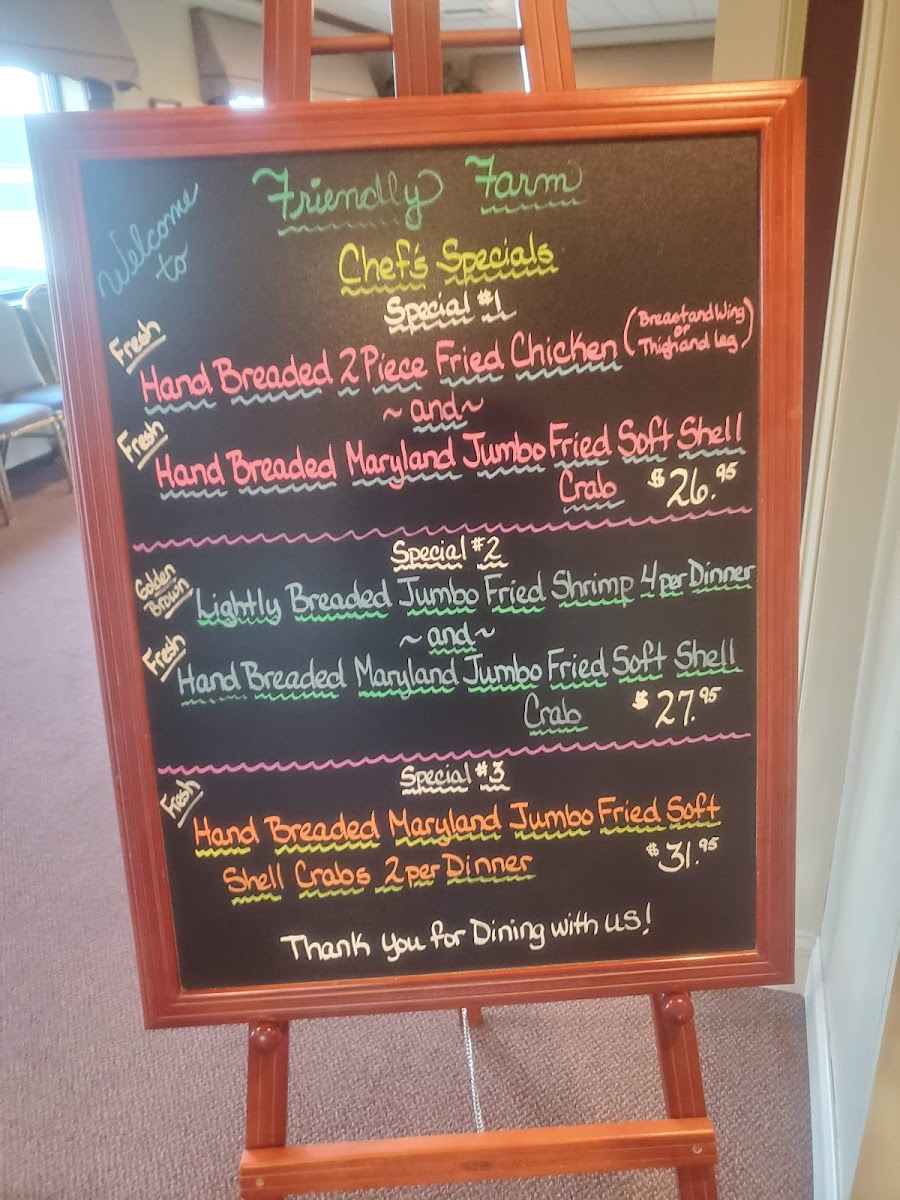 Welcome
to
Friendly Farm
Chef's Specials
Special #1
Fresh
Hand Breaded 2 Piece Fried Chicken (Breast and Wing
or
Thigh and leg)
~and~
Fresh
Hand Breaded Maryland Jumbo Fried Soft Shell
Crab $26.95
Special #2
Golden
Brown
Lightly Breaded Jumbo Fried Shrimp 4 per Dinner
~and~
Fresh
Hand Breaded Maryland Jumbo Fried Soft Shell
Crab $27.95
Special #3
Fresh
Hand Breaded Maryland Jumbo Fried Soft
Shell Crabs 2 per Dinner $31.95
Thank you for Dining with us!